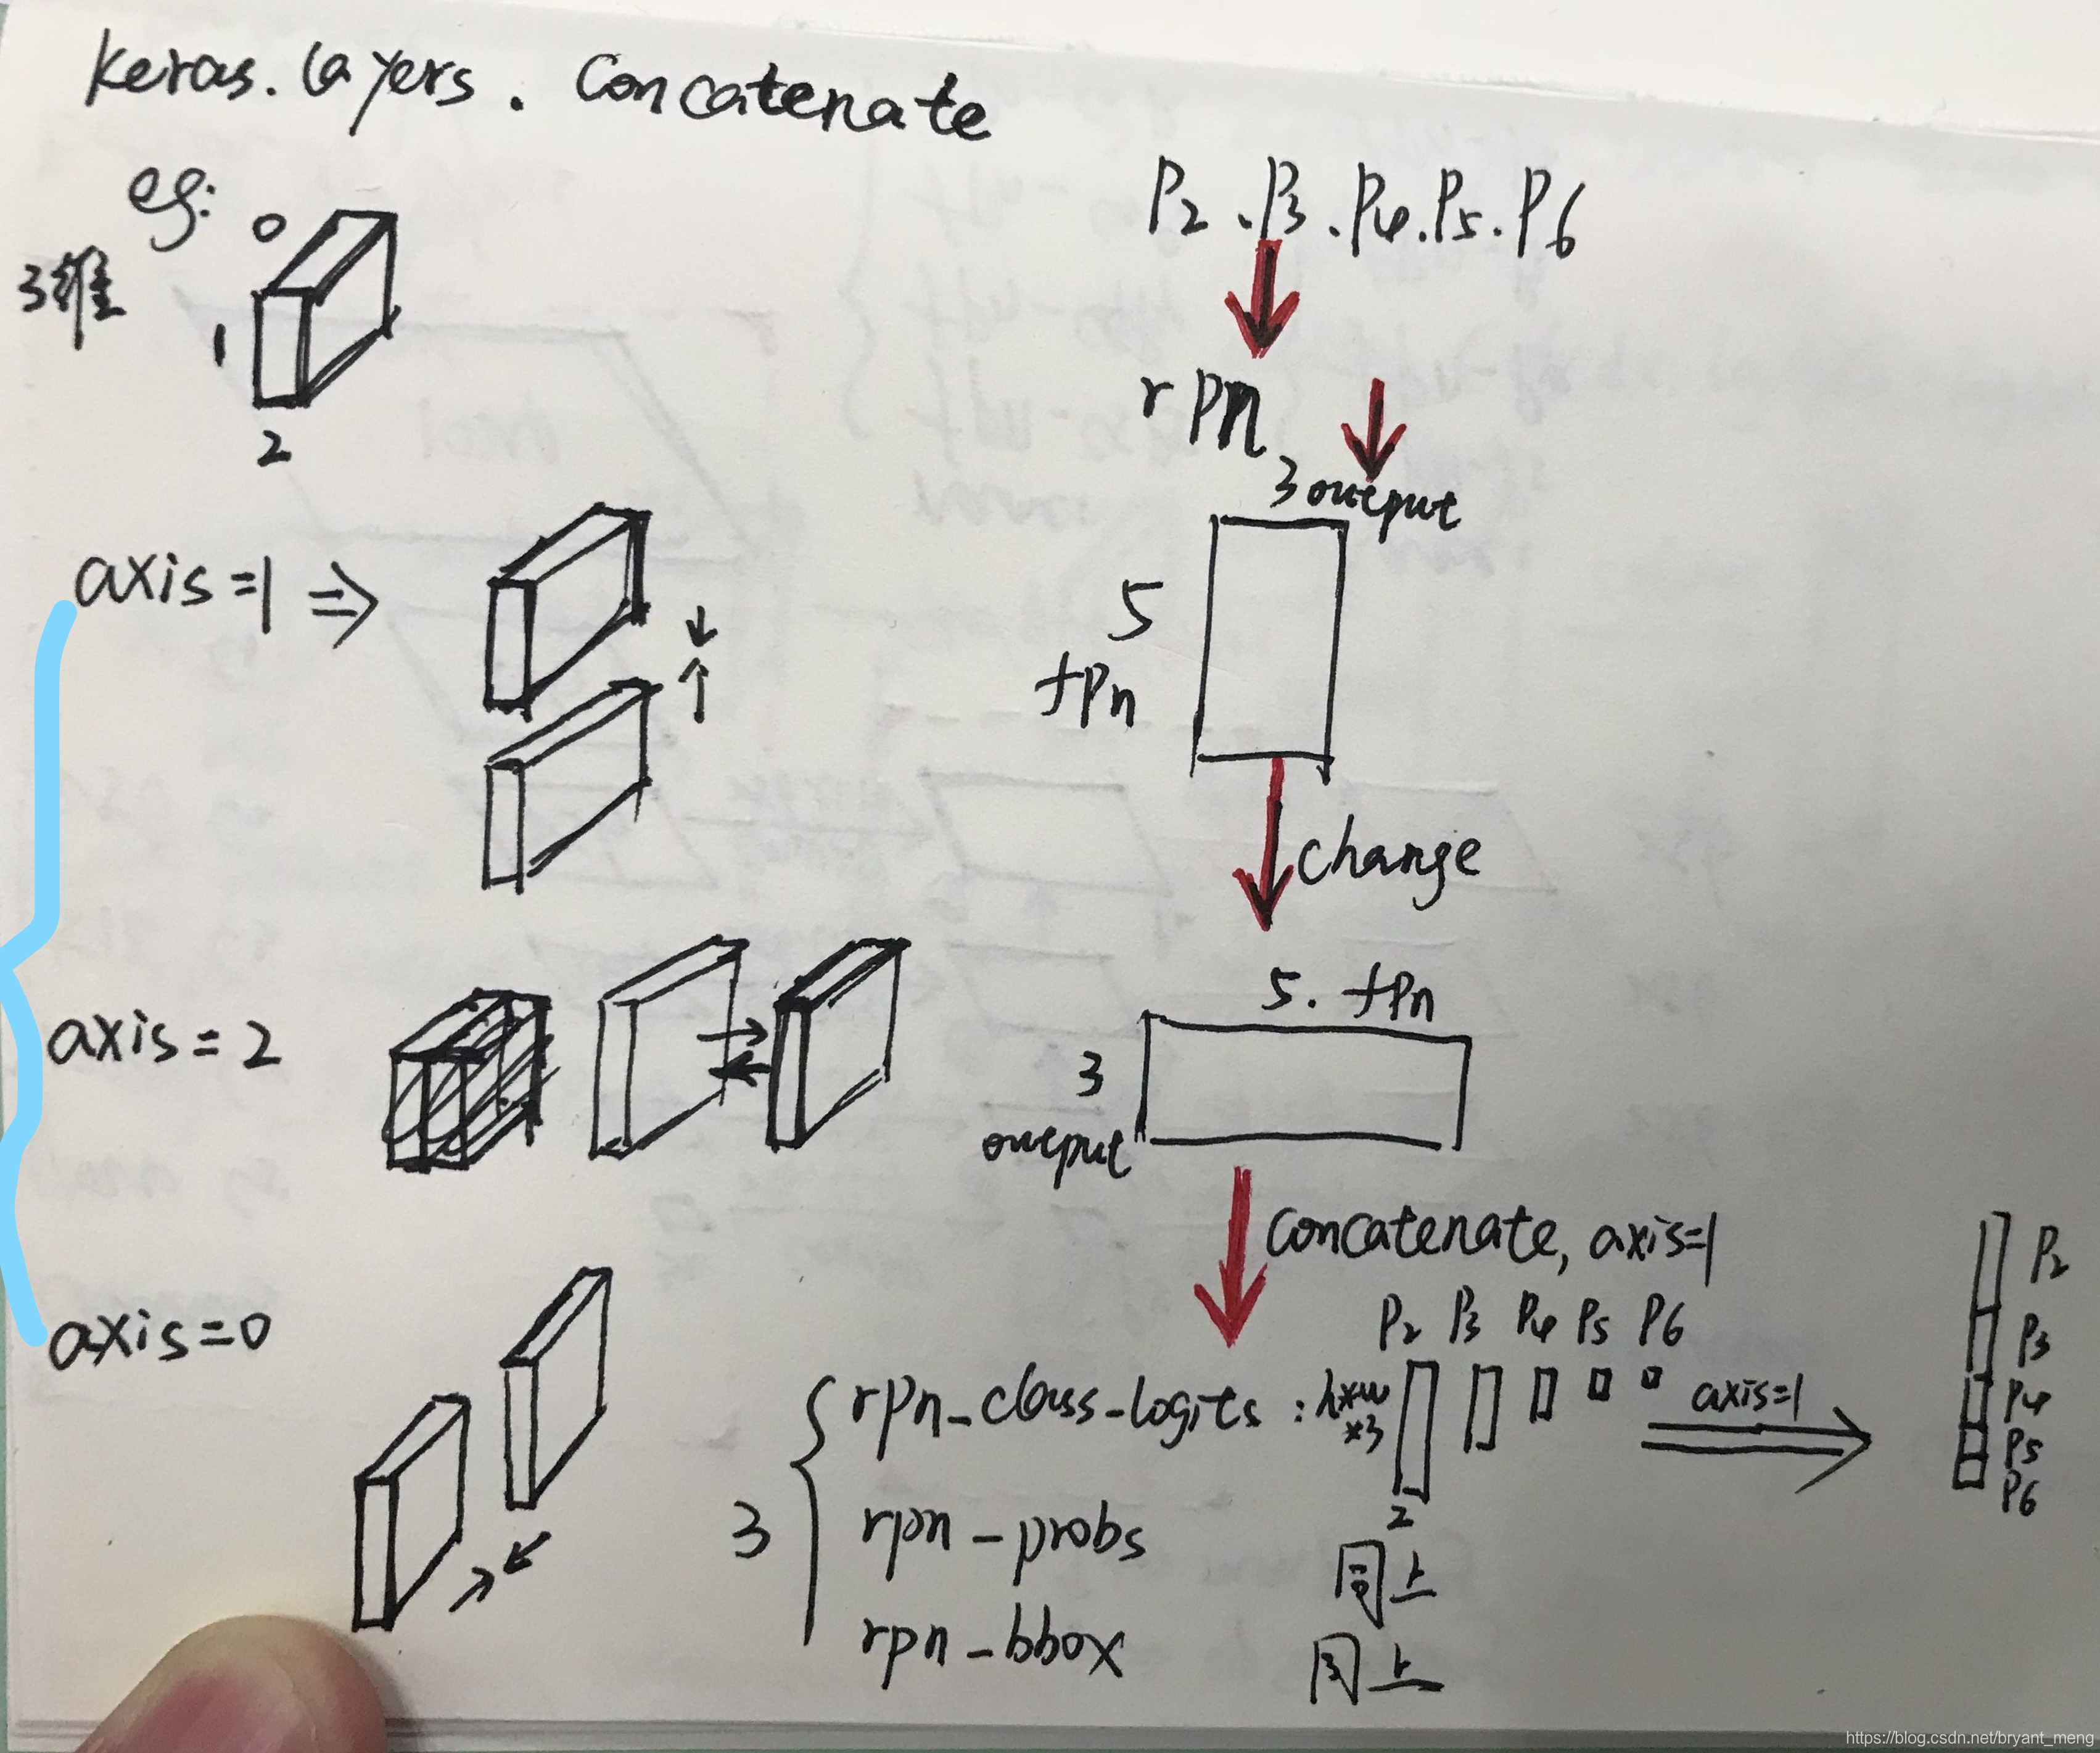 keras.layers.Concatenate
eg:
3维
0
1
2
axis=1 ⇒
axis=2
axis=0
P2.P3.P4.P5.P6
rpn
3 output
5
fpn
change
5. fpn
3
output
concatenate, axis=1
P2 P3 P4 P5 P6
3
rpn_class_logits : h*w
*3
2
axis=1
P2
P3
P4
P5
P6
rpn_probs 同上
rpn_bbox 同上
https://blog.csdn.net/bryant_meng